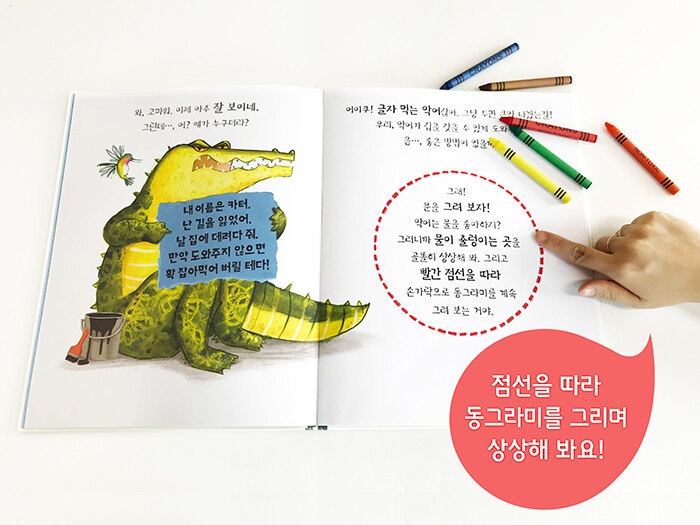 와, 고마워. 이제 아주 잘 보이네.
그런데…, 어? 얘가 누구더라?
내 이름은 카터.
난 길을 잃었어.
날 집에 데려다 줘.
만약 도와주지 않으면
확 잡아먹어 버릴 테다!
어이쿠! 글자 먹는 악어잖아. 그냥 두면 큰일 나겠는걸!
우리, 악어가 집을 찾을 수 있게 도와
음…, 좋은 방법이 있을까
그래!
문을 그려 보자!
악어는 물을 좋아하지?
그러니까 물이 출렁이는 곳을
골똘히 상상해 봐. 그리고
빨간 점선을 따라
손가락으로 동그라미를 계속
그려 보는 거야.
CRAYONS
점선을 따라
동그라미를 그리며
상상해 봐요!